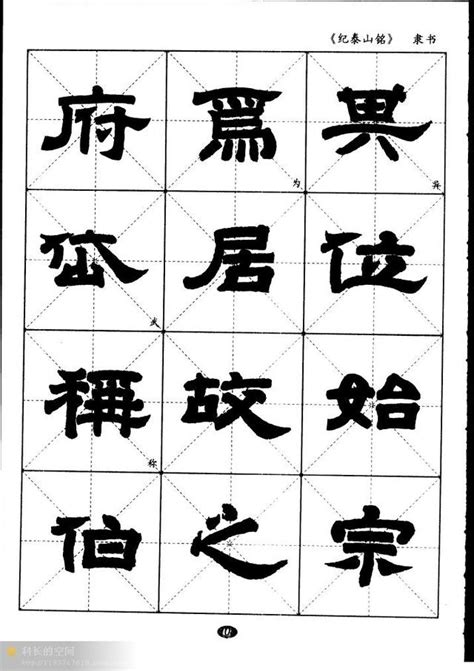 《纪泰山铭》 隶书
異位始宗
爲居故之
府岱稱伯
异
为
称
科长的空间